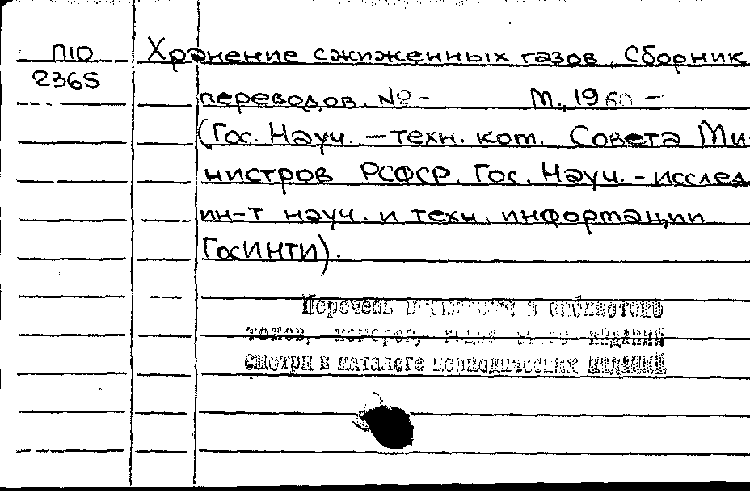 П10 Хранение сжиженных газов. Сборник
2365
переводов. № - М., 1960 -
(Гос. Науч. - техн. ком. Совета Ми-
нистров РСФСР. Гос. Науч. - исслед.
ин-т науч. и техн. информации
ГосИНТИ).
Перечень в библиотеке
томов, номеров, изданий
смотри в каталоге периодических изданий